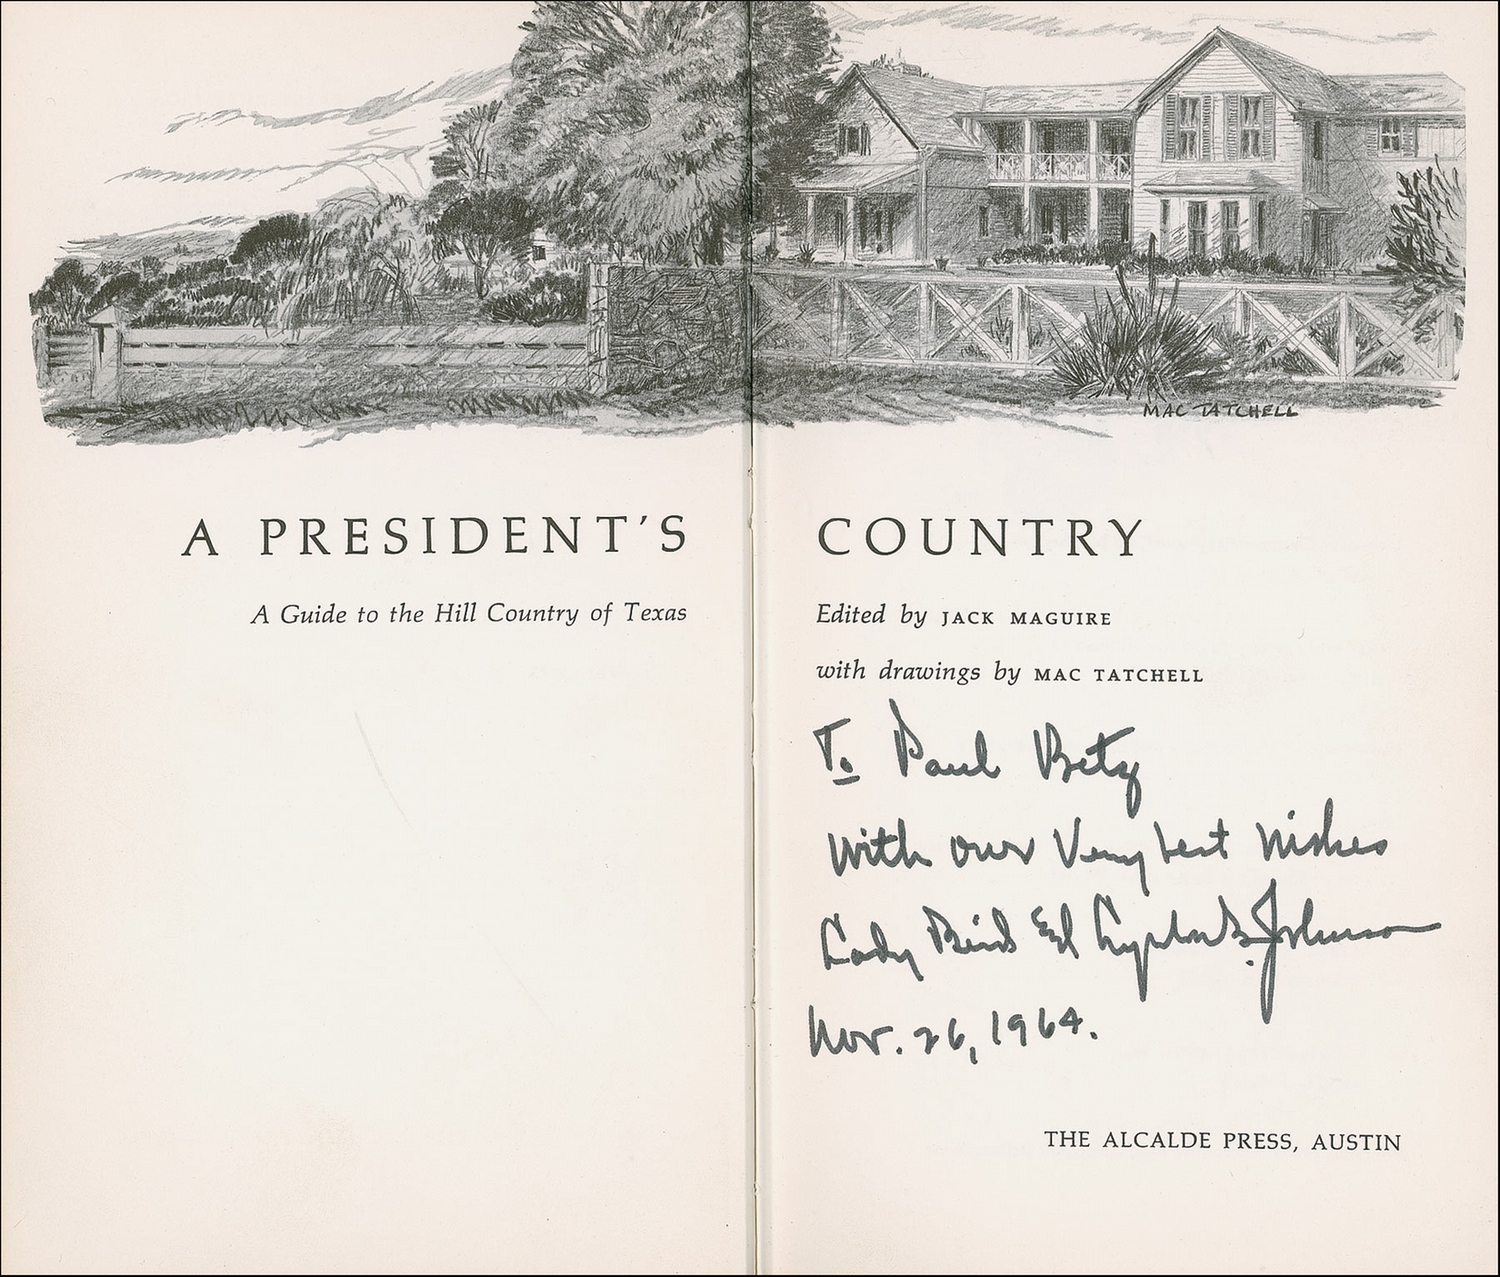 MAC TATCHELL
A PRESIDENT'S COUNTRY
A Guide to the Hill Country of Texas
Edited by JACK MAGUIRE
with drawings by MAC TATCHELL
To Paul Betz
With our Very best Wishes
Lady Bird and Lyndon B. Johnson
Nov. 26, 1964.
THE ALCALDE PRESS, AUSTIN